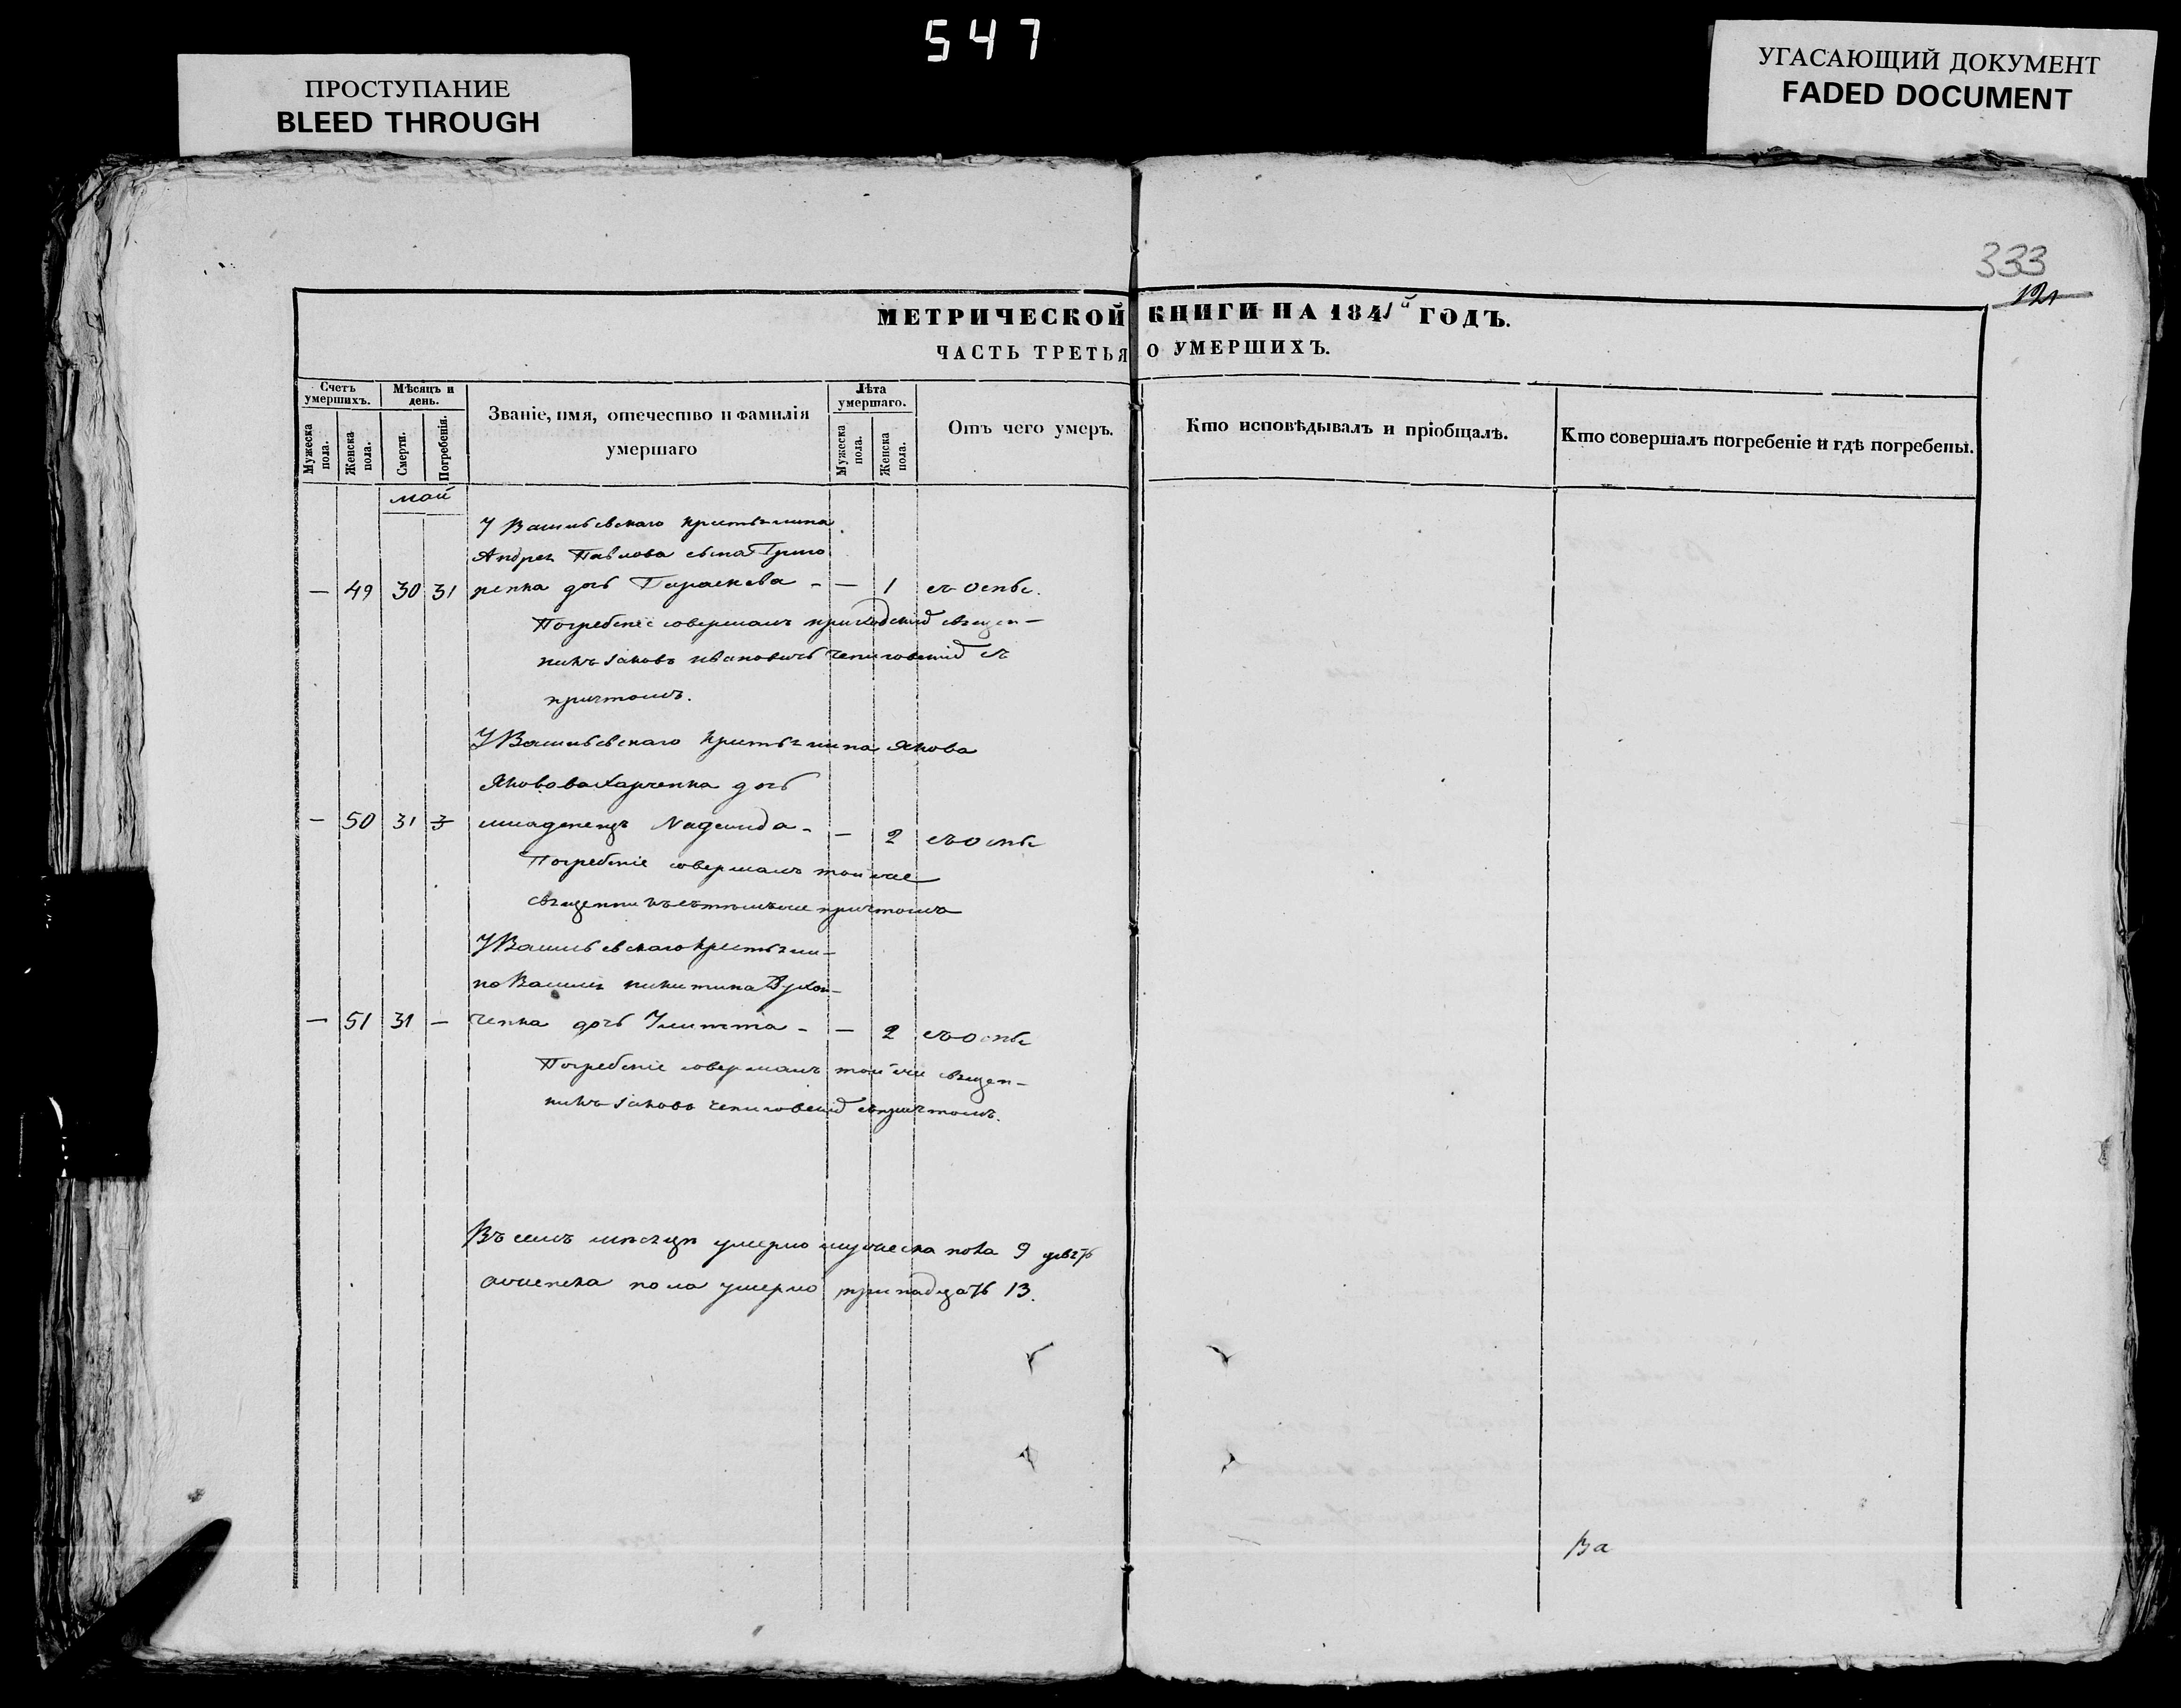 547
ПРОСТУПАНИЕ
BLEED THROUGH
УГАСАЮЩИЙ ДОКУМЕНТ
FADED DOCUMENT
333
121
МЕТРИЧЕСКОЙ КНИГИ НА 1841й ГОДЪ.
ЧАСТЬ ТРЕТЬЯ О УМЕРШИХЪ.
Счетъ умершихъ.
Мужеска пола.
Женска пола.
Мѣсяцъ и день.
Смерти.
Погребенія.
Званіе, имя, отечество и фамилія умершаго
Лѣта умершаго.
Мужеска пола.
Женска пола.
Отъ чего умеръ.
Кто исповѣдывалъ и пріобщалъ.
Кто совершалъ погребеніе и гдѣ погребены.
май
У Васильевскаго крестьянина
Андрея Павлова сына Григо
— 49 30 31 ренка дочь Параскева - — 1 съ оспы.
Погребеніе совершалъ приходскій священ-
никъ Іаковъ Ивановичь Чепиговскій съ
причтомъ.
У Васильевскаго крестьянина Якова
Яковова Харченка дочь
— 50 31 3 младенецъ Надежда - — 2 съ оспы
Погребеніе совершалъ той же
священникъ съ тѣмъ же причтомъ
У Васильевскаго крестьяни-
на Василія Никитина
— 51 31 — ченка дочь Улитта - — 2 съ оспы
Погребеніе совершалъ той же священ-
никъ Іаковъ Чепиговскій съ причтомъ.
Въ семъ мѣсяцѣ умерло мужеска пола 9 девять
женска пола умерло тринадцать 13.
Ва